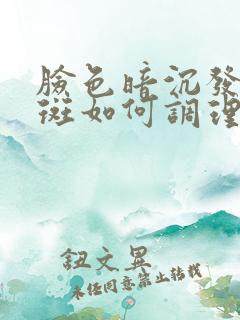 臉色暗沉發
斑如何調理
鈕文異
未經同意禁止轉載